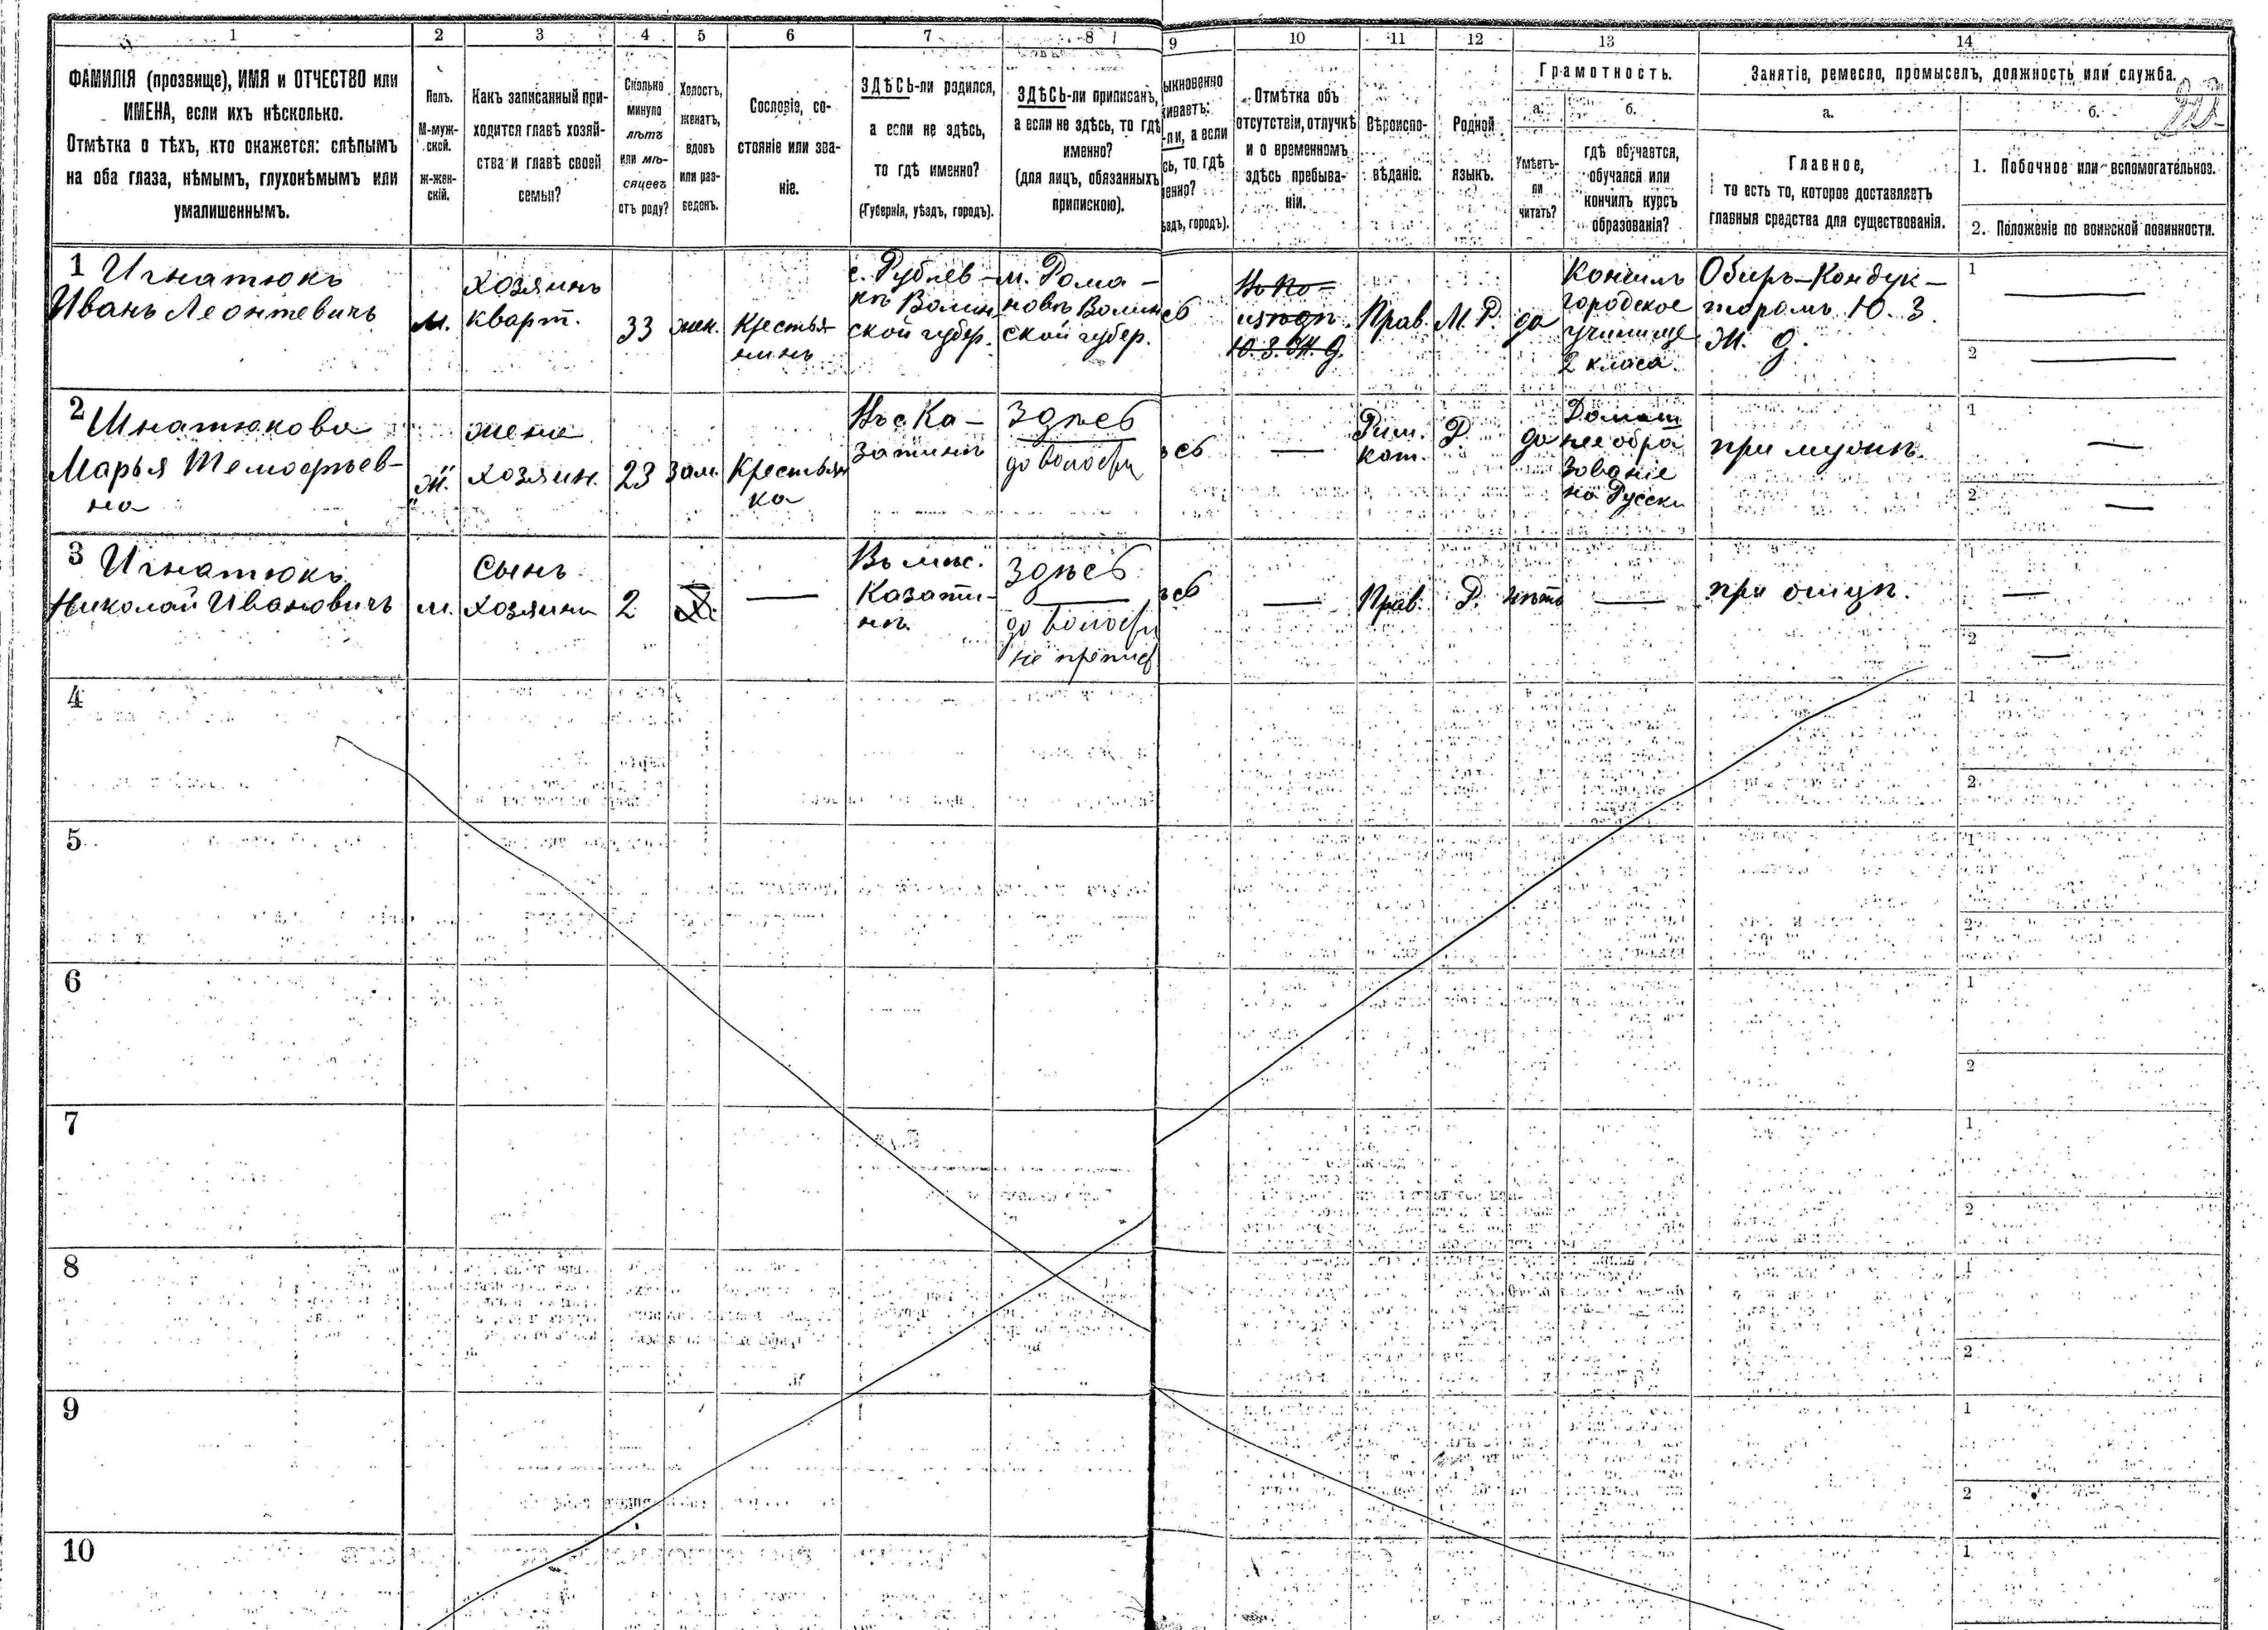 1 2 3 4 5 6 7 8 9 10 11 12 13 14
ФАМИЛІЯ (прозвище), ИМЯ и ОТЧЕСТВО или
ИМЕНА, если ихъ нѣсколько.
Отмѣтка о тѣхъ, кто окажется: слѣпымъ
на оба глаза, нѣмымъ, глухонѣмымъ или
умалишеннымъ.
Полъ.
М-муж-
ской.
ж-жен-
скій.
Какъ записанный при-
ходится главѣ хозяй-
ства и главѣ своей
семьи?
Сколько
минуло
лѣтъ
или мѣ-
сяцевъ
отъ роду?
Холостъ,
женатъ,
вдовъ
или раз-
веденъ.
Сословіе, со-
стояніе или зва-
ніе.
ЗДѢСЬ-ли родился,
а если не здѣсь,
то гдѣ именно?
(Губернія, уѣздъ, городъ).
ЗДѢСЬ-ли приписанъ,
а если не здѣсь, то гдѣ
именно?
(для лицъ, обязанныхъ
припискою).
ыкновенно
живаетъ:
-ли, а если
сь, то гдѣ
енно?
ѣздъ, городъ).
Отмѣтка объ
отсутствіи, отлучкѣ
и о временномъ
здѣсь пребыва-
ніи.
Вѣроиспо-
вѣданіе.
Родной
языкъ.
Грамотность.
а.
Умѣетъ-
ли
читать?
б.
гдѣ обучается,
обучался или
кончилъ курсъ
образованія?
Занятіе, ремесло, промыселъ, должность или служба.
а.
Главное,
то есть то, которое доставляетъ
главныя средства для существованія.
б.
1. Побочное или вспомогательное.
2. Положеніе по воинской повинности.
1 Игнатюкъ
Иванъ Леонтевичъ
М.
хозяинъ
кварт.
33
жен.
Крестья-
нинъ
с. Рублев-
кѣ Волын
ской губер.
м. Рома-
новѣ Волын
ской губер.
сь
Ю. З. Ж. д.
Прав.
М. Р.
да
Кончилъ
городское
училище
2 класа.
Оберъ-Кондук-
торомъ Ю. З.
Ж. д.
1
2
2 Игнатюкова
Марья
на
Ж.
жена
хозяин.
23
зам.
Крестьян
ка
Ка-
затинѣ
здѣсь
до волости
сь
Рим.
кат.
Р.
да
Домаш
нее обра
зованіе
на Русски
при мужѣ.
1
2
3 Игнатюкъ
Николай Ивановичъ
м.
сынъ
хозяина
2
Х.
Въ мѣс.
Казати-
нѣ.
здѣсь
до волости
не припис
сь
Прав.
Р.
нѣтъ
при отцѣ.
1
2
4
1
2
5
1
2
6
1
2
7
1
2
8
1
2
9
1
2
10
1